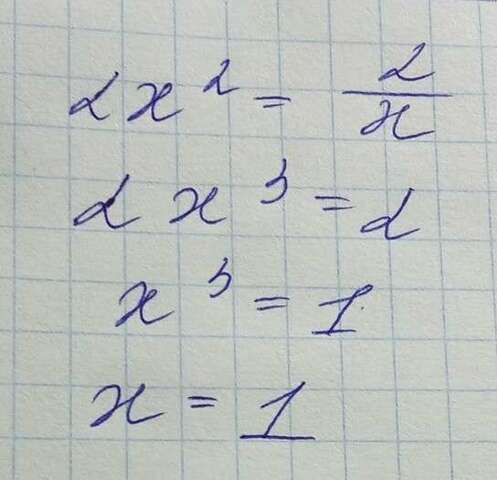 2x² = 2/x
2x³ = 2
x³ = 1
x = 1